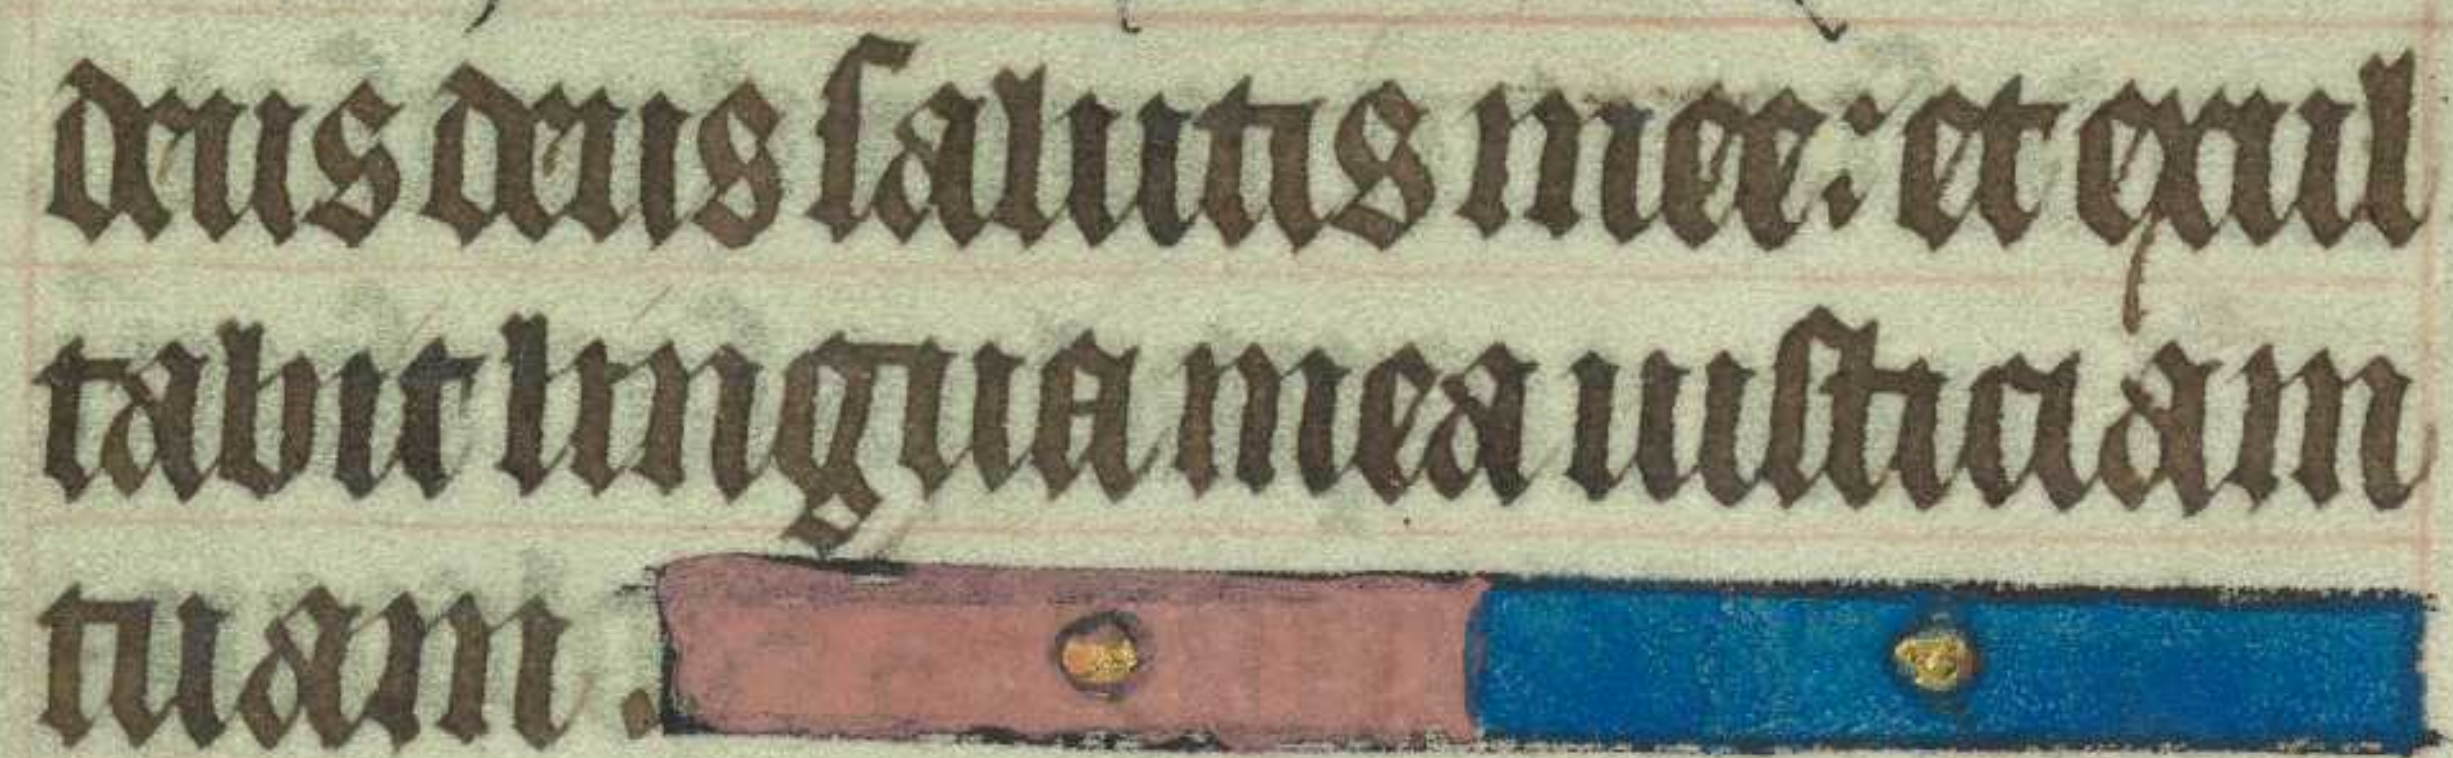 deus deus ſalutis mee: et exul
tabit lingua mea iuſticiam
tuam.